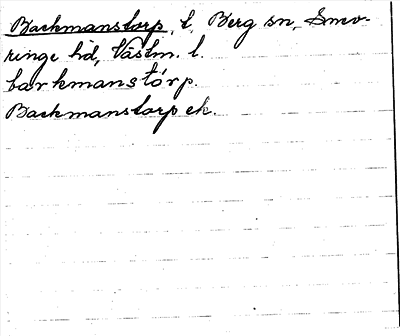 Backmanstorp, l, Berg sn, Snev-
ringe hd, Västm. l.
barkmanstórp.
Backmanstorp ek.